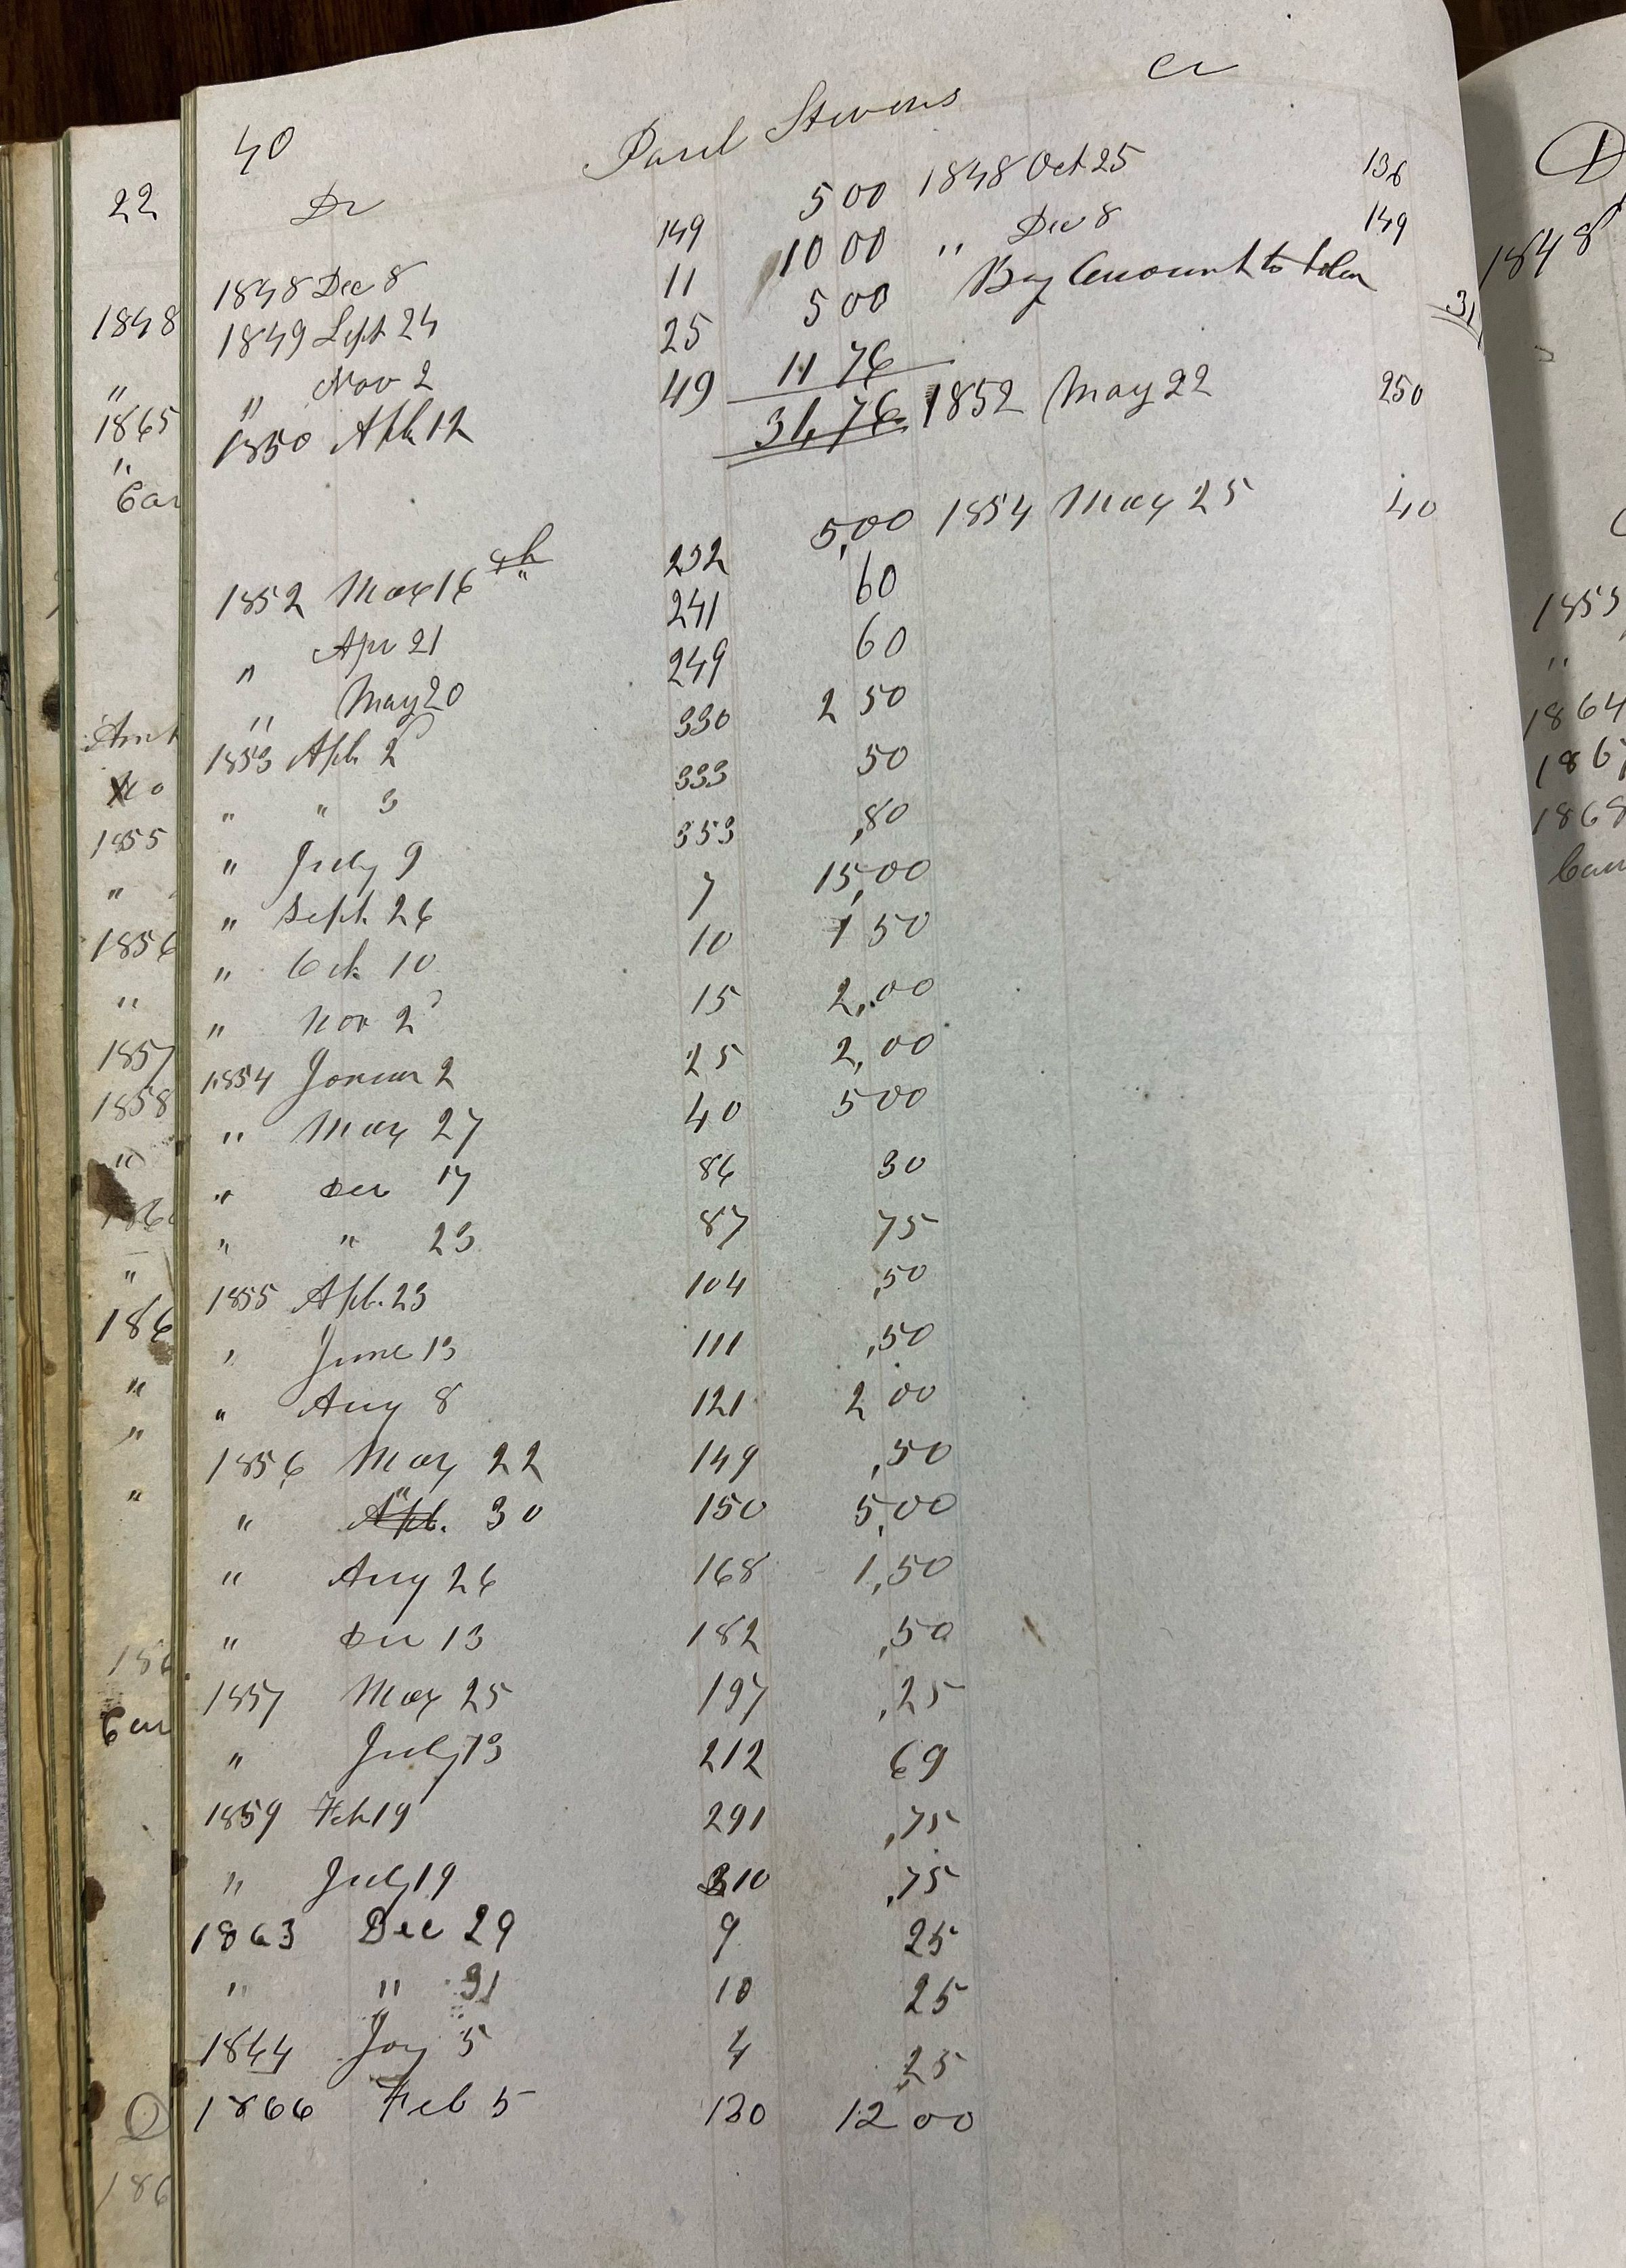 40 Paul Stevens Cr
Dr
1848 Dec 8 149 5 00 1848 Oct 25 136
1849 Sept 24 11 10 00 " Dec 8 149
" Nov 2 25 5 00 By Amount to
1850 Apl 12 49 11 76
31,76 1852 May 22 250
1852 Mar 16 232 5,00 1854 May 25 40
" Apr 21 241 60
" May 20 249 60
1853 Apl. 2 330 2 50
" " 3 333 50
" July 9 353 ,80
" Sept. 26 7 15,00
" Oct. 10 10 1 50
" Nov 2 15 2,00
1854 2 25 2,00
" May 27 40 5 00
" Dec 17 86 30
" " 23 87 75
1855 Apl. 23 104 ,50
" June 13 111 ,50
" Aug 8 121 2 00
1856 May 22 149 ,50
" Apl. " 30 150 5,00
" Aug 26 168 1,50
" Dec 13 182 ,50
1857 May 25 197 ,25
" July 13 212 69
1859 Feb 19 291 ,75
" July 19 310 ,75
1863 Dec 29 9 25
" " 31 10 25
1864 Jay 5 4 25
1866 Feb 5 130 12 00
22
1848
"
1865
"
Car
Amt
1855
"
1856
"
1857
1858
"
186
"
186
"
"
"
186
Car
186
D
1848
1855
"
1864
186
186
Carr